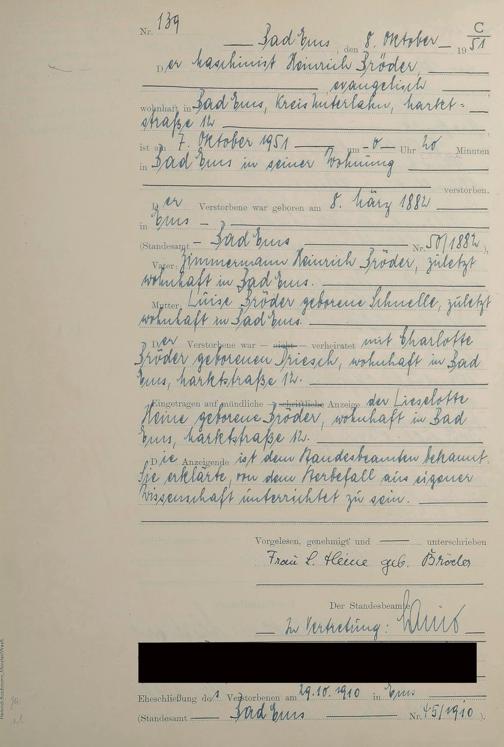 Nr. 139
C
Bad Ems, den 8. Oktober 19 51
Der Maschinist Heinrich Bröder,
evangelisch
wohnhaft in Bad Ems, Kreis Unterlahn, Markt=
straße 12
ist am 7. Oktober 1951 um 0 Uhr 20 Minuten
in Bad Ems in seiner Wohnung
verstorben.
Der Verstorbene war geboren am 8. März 1882
in Ems
(Standesamt Bad Ems Nr. 50/1882),
Vater: Zimmermann Heinrich Bröder, zuletzt
wohnhaft in Bad Ems.
Mutter: Luise Bröder geborene Schnelle, zuletzt
wohnhaft in Bad Ems.
Der Verstorbene war — nicht — verheiratet mit Charlotte
Bröder geborenen Driesch, wohnhaft in Bad
Ems, Marktstraße 12.
Eingetragen auf mündliche — schriftliche Anzeige der Lieselotte
Heine geborene Bröder, wohnhaft in Bad
Ems, Marktstraße 12.
Die Anzeigende ist dem Standesbeamten bekannt.
Sie erklärte, von dem Sterbefall aus eigener
Wissenschaft unterrichtet zu sein.
Vorgelesen, genehmigt und unterschrieben
Frau L. Heine geb. Bröder
Der Standesbeamte
In Vertretung:
Eheschließung des Verstorbenen am 29.10.1910 in Ems
(Standesamt Bad Ems Nr. 45/1910).